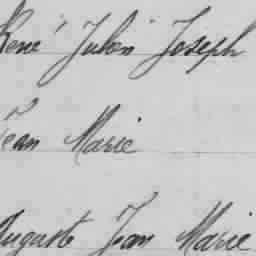 René Julien Joseph
Jean Marie
Auguste Jean Marie